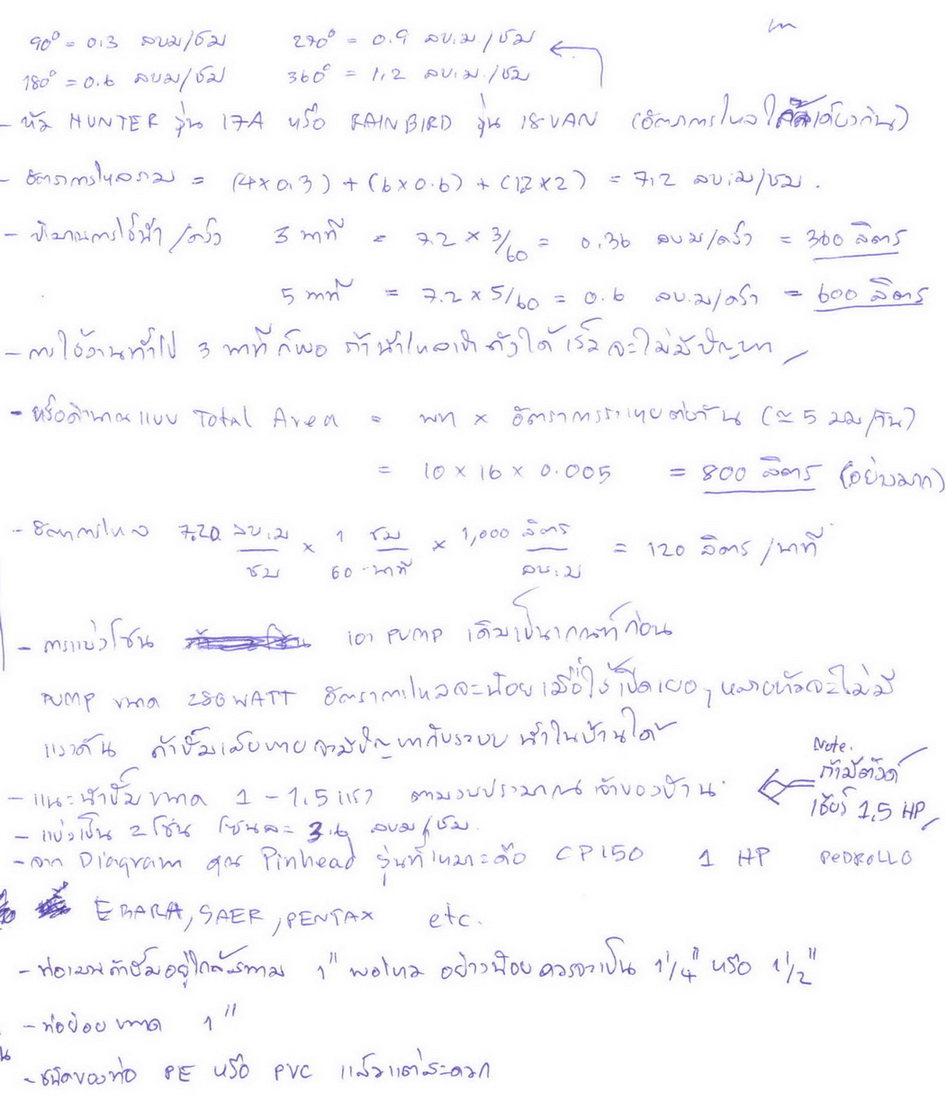 90° = 0.3 ลบม/ชม 270° = 0.9 ลบ.ม/ชม
180° = 0.6 ลบม/ชม 360° = 1.2 ลบ.ม./ชม
- หัว HUNTER รุ่น 17A หรือ RAINBIRD รุ่น 18VAN (อัตราการไหลใกล้เคียงกัน)
- อัตราการไหลรวม = (4x0.3) + (6x0.6) + (12x2) = 7.2 ลบ.ม/ชม.
- ปริมาณการใช้น้ำ/ครั้ง 3 นาที = 7.2 x 3/60 = 0.36 ลบ.ม/ครั้ง = 360 ลิตร
5 นาที = 7.2 x 5/60 = 0.6 ลบ.ม/ครั้ง = 600 ลิตร
- การใช้งานทั่วไป 3 นาที ก็พอ ถ้าน้ำไหลเข้าถังได้เร็วจะไม่มีปัญหา
- หรือคำนวณแบบ Total Area = พท x อัตราการระเหยต่อวัน (≈ 5 มม/วัน)
= 10 x 16 x 0.005 = 800 ลิตร (อย่างมาก)
- อัตราการไหล 7.20 ลบ.ม/ชม x 1/60 ชม/นาที x 1,000 ลิตร/ลบ.ม = 120 ลิตร/นาที
- การแบ่งโซน เอา PUMP เดิมเป็นเกณฑ์ก่อน
PUMP ขนาด 280 WATT อัตราการไหลจะน้อย เมื่อใช้เปิดเยอะๆ หลายหัวจะไม่มี
แรงดัน ถ้าปั๊มเสียหาย จะมีปัญหากับระบบน้ำในบ้านได้
- แนะนำปั๊มขนาด 1 - 1.5 แรง ตามงบประมาณเจ้าของบ้าน
Note.
ถ้ามีตังค์
เชียร์ 1.5 HP
- แบ่งเป็น 2 โซน โซนละ 3.6 ลบม/ชม.
- จาก Diagram คุณ Pinhead รุ่นที่เหมาะคือ CP150 1 HP PEDROLLO
EBARA, SAER, PENTAX etc.
- ท่อเมนถ้าปั๊มอยู่ใกล้สนาม 1" พอไหม อย่างน้อยควรจะเป็น 1 1/4" หรือ 1 1/2"
- ท่อย่อยขนาด 1"
- ชนิดของท่อ PE หรือ PVC แล้วแต่สะดวก